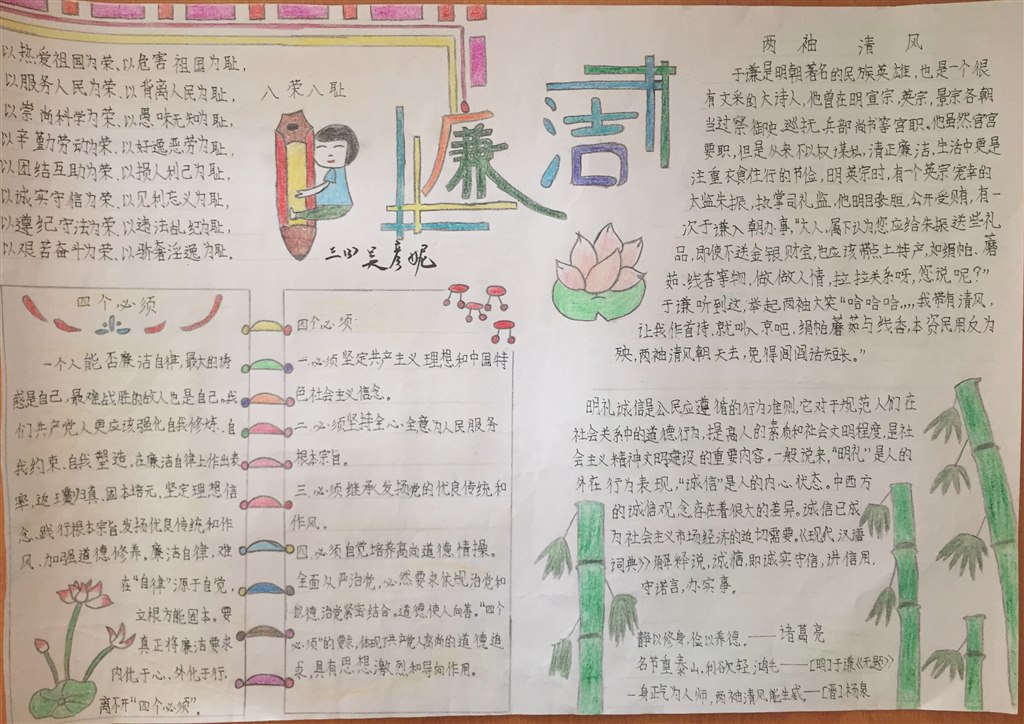 以热爱祖国为荣、以危害祖国为耻,
以服务人民为荣、以背离人民为耻,
以崇尚科学为荣、以愚昧无知为耻,
以辛勤劳动为荣、以好逸恶劳为耻,
以团结互助为荣、以损人利己为耻,
以诚实守信为荣、以见利忘义为耻,
以遵纪守法为荣、以违法乱纪为耻,
以艰苦奋斗为荣、以骄奢淫逸为耻。
八荣八耻
廉洁
三四吴彦妮
四个必须
一个人能否廉洁自律,最大的诱
惑是自己,最难战胜的敌人也是自己。我
们共产党人更应该强化自我修炼、自
我约束、自我塑造,在廉洁自律上作出表
率,返璞归真、固本培元,坚定理想信
念、践行根本宗旨发扬优良传统和作
风、加强道德修养。廉洁自律,难
在“自律”源于自觉,
立根方能固本。要
真正将廉洁要求
内化于心、外化于行,
离不开“四个必须”。
四个必须:
一.必须坚定共产主义理想和中国特
色社会主义信念。
二.必须坚持全心全意为人民服务
根本宗旨。
三.必须继承发扬党的优良传统和
作风。
四.必须自觉培养高尚道德情操。
全面从严治党,必然要求依规治党和
以德治党紧密结合。道德使人向善。“四个
必须”的要求,体现了共产党人高尚的道德追
求,具有思想激烈和导向作用。
两袖 清风
于谦是明朝著名的民族英雄,也是一个很
有文采的大诗人,他曾在明宣宗,英宗,景宗各朝
当过察御史、巡抚、兵部尚书等官职。他虽然官官
要职,但是从来不以权谋私,清正廉洁,生活中更是
注重衣食住行的节俭,明英宗时,有个英宗宠幸的
太监朱振,执掌司礼监,他明目张胆,公开受贿,有一
次于谦入朝办事,“大人,属下认为您应给朱振送些礼
品,即使不送金银财宝,也应该带点土特产,如绢帕、蘑
茹、线香等物,做做人情,拉拉关系呀,您说呢?”
于谦听到这,举起两袖大笑“哈哈哈,,,,我带有清风,
让我作首诗,就叫入京吧,绢帕蘑茹与线香,本资民用反为
殃,两袖清风朝天去,免得闾阎话短长。”
明礼诚信是公民应遵循的行为准则,它对于规范人们在
社会关系中的道德行为,提高人的素质和社会文明程度,是社
会主义精神文明建设的重要内容。一般说来,“明礼”是人的
外在行为表现,“诚信”是人的内心状态。中西方
的诚信观念存在着很大的差异。诚信已成
为社会主义市场经济的迫切需要。《现代汉语
词典》解释说,诚信,即诚实守信,讲信用,
守诺言,办实事。
静以修身,俭以养德.——诸葛亮
名节重泰山,利欲轻鸿毛——[明]于谦《无题》
一身正气为人师,两袖清风能生威——[晋]杨泉